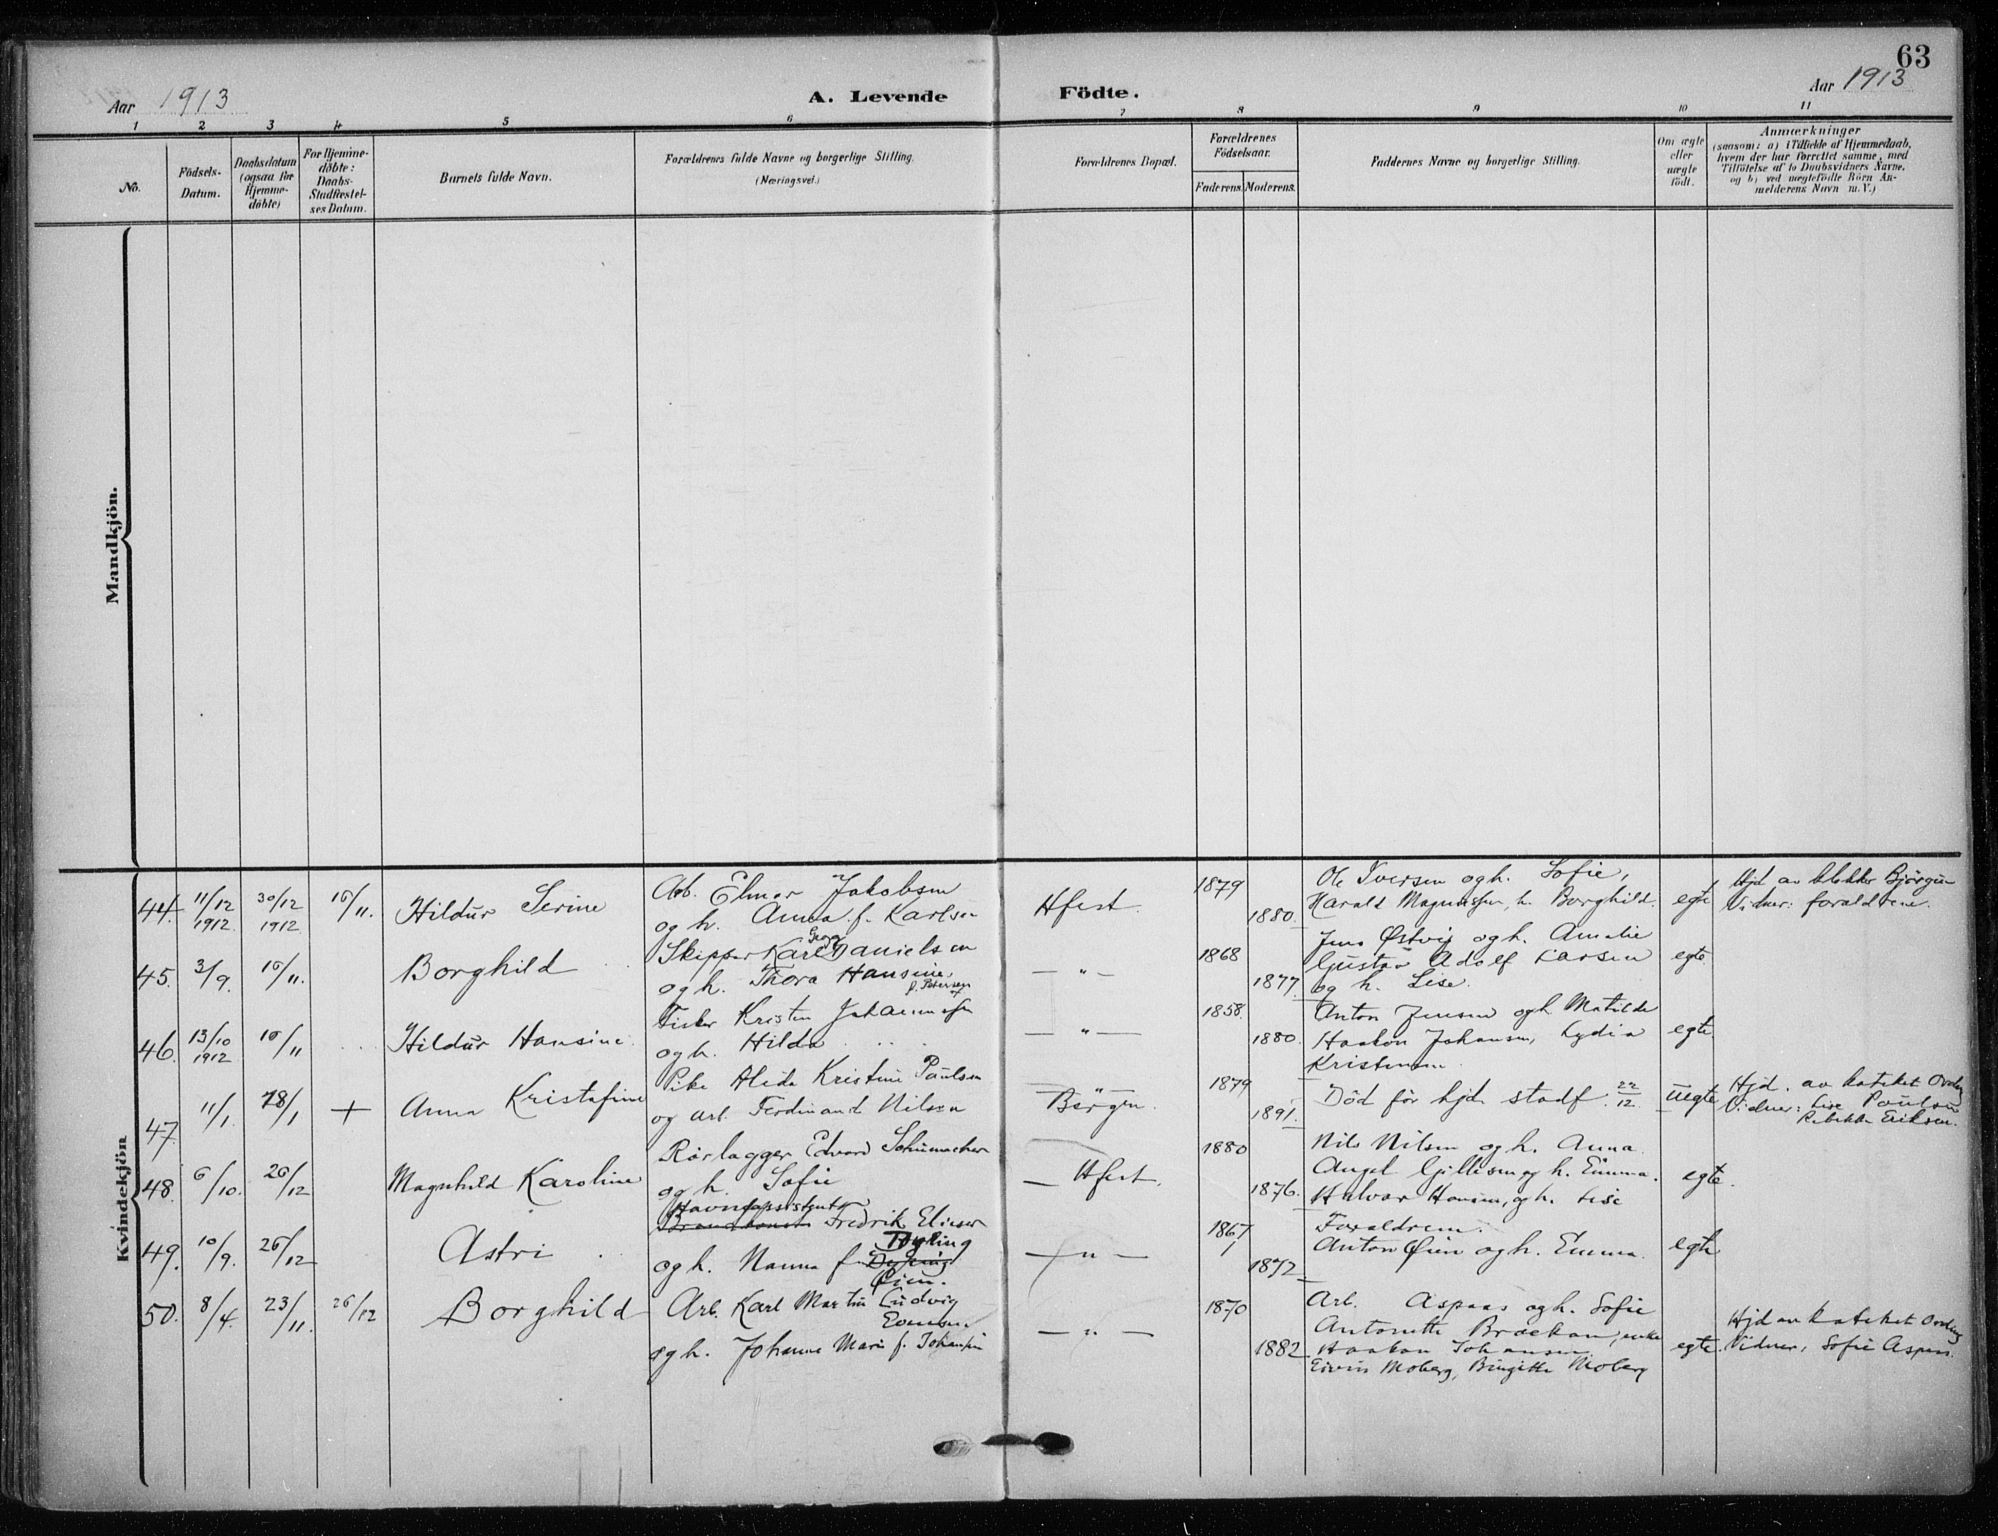 63
Aar 1913 A. Levende Födte. Aar 1913
1 2 3 4 5 6 7 8 9 10 11
No.
Födsels-
Datum.
Daabsdatum
(ogsaa for
Hjemme-
döbte)
For Hjemme-
döbte:
Daabs-
Stadfæstel-
ses Datum.
Barnets fulde Navn.
Forældrenes fulde Navne og borgerlige Stilling.
(Næringsvei.)
Forældrenes Bopæl.
Forældrenes
Födselsaar.
Faderens. Moderens.
Faddernes Navne og borgerlige Stilling.
Om ægte
eller
uægte
födt.
Anmærkninger
(saasom: a) i Tilfælde af Hjemmedaab,
hvem der har forrettet samme, med
Tilföielse af to Daabsvidners Navne,
og b) ved uægtefödte Börn An-
melderens Navn m. V.)
Mandkjön.
Kvindekjön
44 11/12 1912 30/12 1912 16/11. Hildur Serine
Arb. Elmer Jakobsen
og h. Anna f. Karlsen
Hfest.
1879
1880.
Ole Iversen og h. Sofie,
Harald Magnussen, h. Borghild.
egte
Hjd av klokker Björgen
Vidner: foraldrene.
45. 3/9. 16/11. Borghild
Skipper Karl Georg Danielsen
og h. Thora Hansine
f. Petersen
— " —
1868
1877.
Jens Østvig og h. Amalie
Gustav Adolf Larsen
og h. Lise.
egte.
46. 13/10 1912 16/11 Hildur Hansine.
Fisker Kristen Johannessen
og h. Hilda
— " —
1858.
1880.
Anton Jensen og h. Matilde
Haakon Johansen, Lydia
Kristensen
egte.
47 11/1. 28/1 + Anna Kristafine
Pike Alida Kristine Paulsen
og arb. Ferdinand Nilsen
Bergen.
1879
1891.
Död för hjd. stadf. 22/12.
uegte
Hjd. av kateket Ording
Vidner: Lise Poulsen
Rebekka Eriksen.
48. 6/10. 26/12 Magnhild Karoline
Rörlægger Edvard Schumacher
og h. Sofie
— Hfest.
1880
1876.
Nils Nilsen og h. Anna.
Angel Gjillesen og h. Emma.
Halvor Hansen, og h. Lise
egte.
49. 10/9. 26/12 Astri
Havneassistent
Fredrik Elieser
Tyring
og h. Nanna f.
Øien.
— " —
1867
1872
Foraldrene.
Anton Øien og h. Emma.
egte
50. 8/4. 23/11. 26/12 Borghild
Arb. Karl Martin Ludvig
Evensen
og h. Johanne Marie f. Johansen
— " —
1870
1882
Arb. Aspaas og h. Sofie
Antonette Brækan, enke
Haakon Johansen.
Eivin Moberg, Birgitte Moberg
egte.
Hjd av kateket Ording
Vidner, Sofie Aspaas.